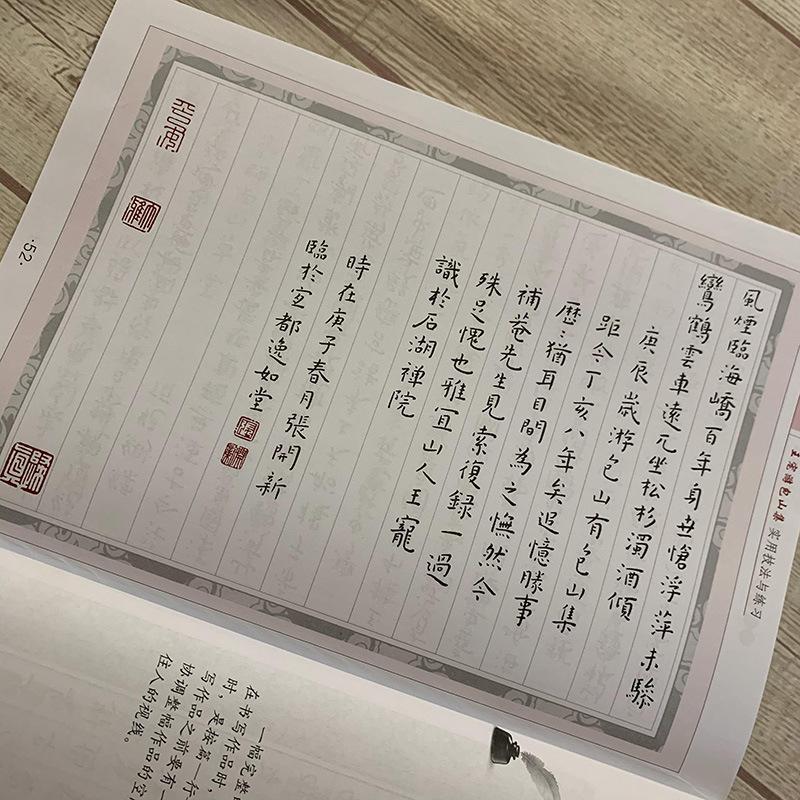 風煙臨海嶠百年身世愴浮萍未驂
鸞鶴雲車遠兀坐松杉濁酒傾
庚辰歲游包山有包山集
距今丁亥八年矣追憶勝事
歷:猶耳目間為之憮然今
補菴先生見索復錄一過
殊足愧也雅宜山人王寵
識於石湖禪院
時在庚子春月張開新
臨於宜都逸如堂
王宠游包山集 实用技法与练习
·52·
一幅完整
在书写作品时，
时，是按篇一行
写作品之前要有一
协调整幅作品的空
住人的视线。